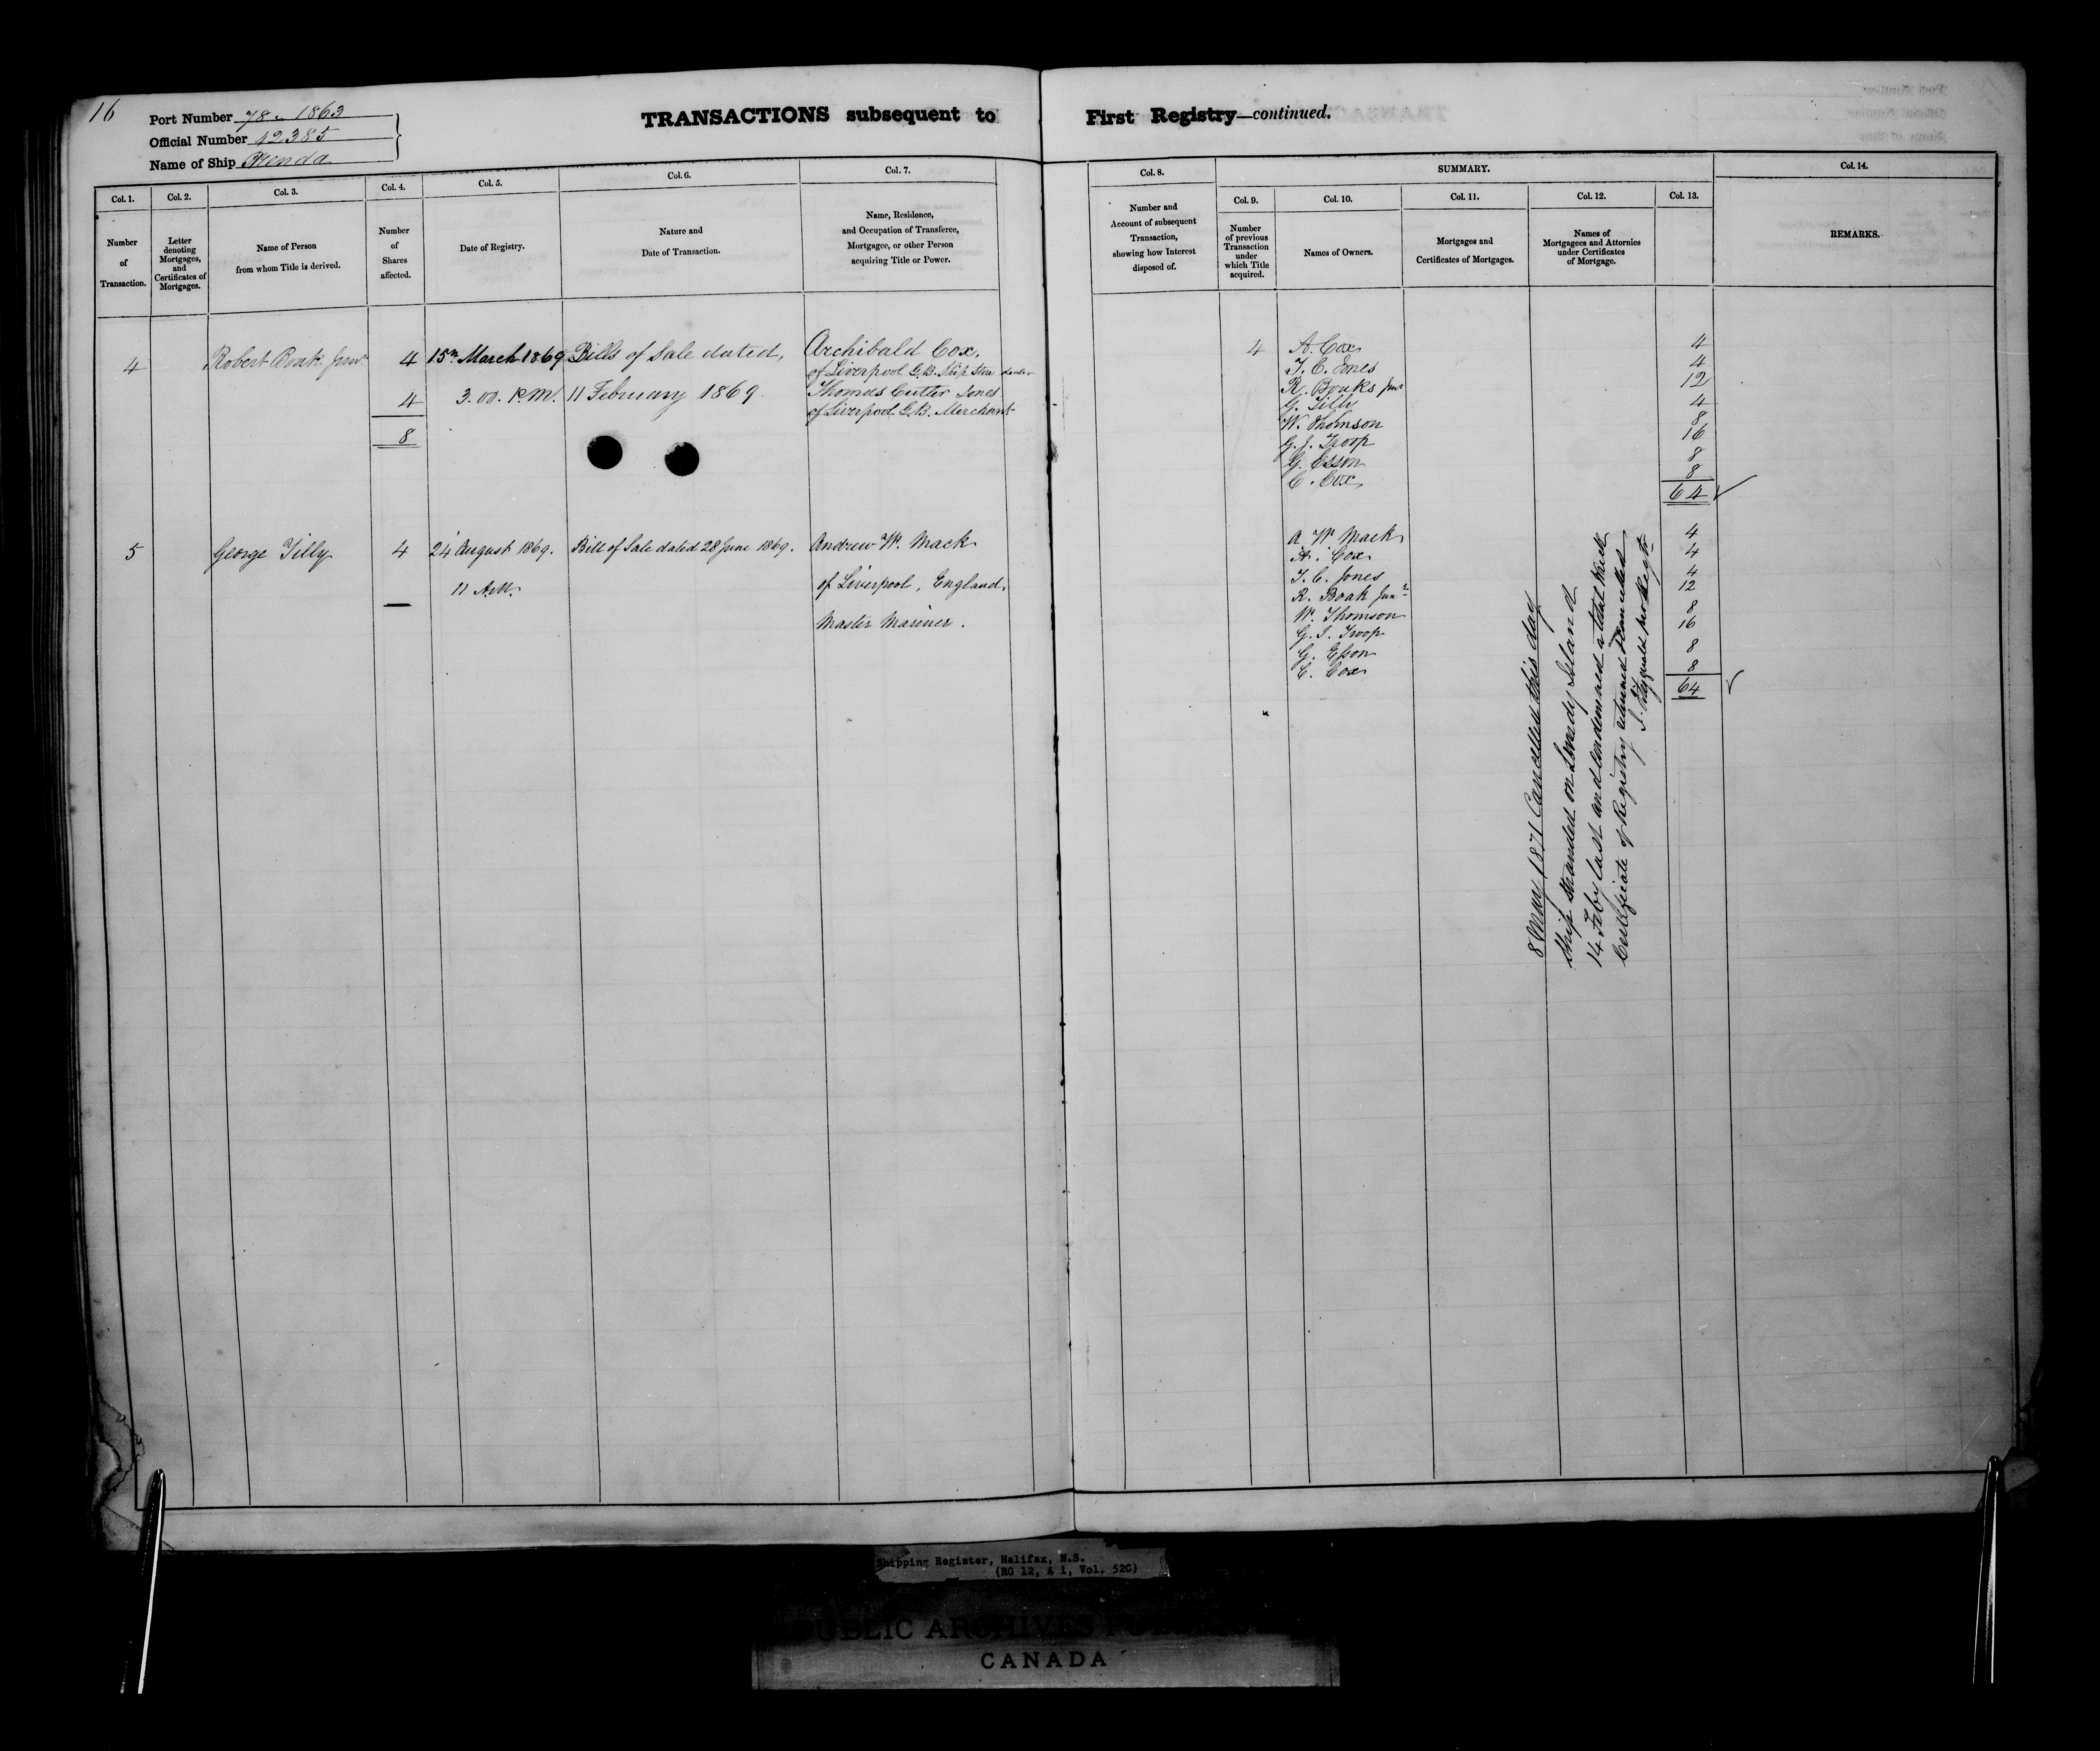 16
Port Number 78 - 1863
Official Number 42385
Name of Ship
TRANSACTIONS subsequent to First Registry—continued.
Col. 1.
Number of Transaction.
Col. 2.
Letter denoting Mortgages, and Certificates of Mortgages.
Col. 3.
Name of Person from whom Title is derived.
Col. 4.
Number of Shares affected.
Col. 5.
Date of Registry.
Col. 6.
Nature and Date of Transaction.
Col. 7.
Name, Residence, and Occupation of Transferee, Mortgagee, or other Person acquiring Title or Power.
Col. 8.
Number and Account of subsequent Transaction, showing how Interest disposed of.
SUMMARY.
Col. 9.
Number of previous Transaction under which Title acquired.
Col. 10.
Names of Owners.
Col. 11.
Mortgages and Certificates of Mortgages.
Col. 12.
Names of Mortgagees and Attornies under Certificates of Mortgage.
Col. 13.
Col. 14.
REMARKS.
4 Robert Boak Junr 4 15th March 1869 Bills of Sale dated, Archibald Cox,
of Liverpool G.B. Ship Store dealer
4 3.00. P.M. 11 February 1869. Thomas Cutter Jones
of Liverpool G.B. Merchant
8
4 A. Cox 4
T. C. Jones 4
R. Boaks Junr 12
G. Tilly 4
W. Thomson 8
G. J. Troop 16
G. Esson 8
C. Cox 8
64
5 George Tilly 4 24 August 1869. Bill of Sale dated 28 June 1869. Andrew W. Mack
11 A.M. of Liverpool, England,
Master Mariner.
A W Mack 4
A. Cox 4
T. C. Jones 4
R. Boak Junr 12
W. Thomson 8
G. J. Troop 16
G. Esson 8
C. Cox 8
64
8 May 1871 Cancelled this day
Ship stranded on Lundy Island
14 Feby last and condemned a total wreck
Certificate of Registry returned & cancelled
Shipping Register, Halifax, N.S.
(RG 12, A 1, Vol. 52C)
PUBLIC ARCHIVES
CANADA